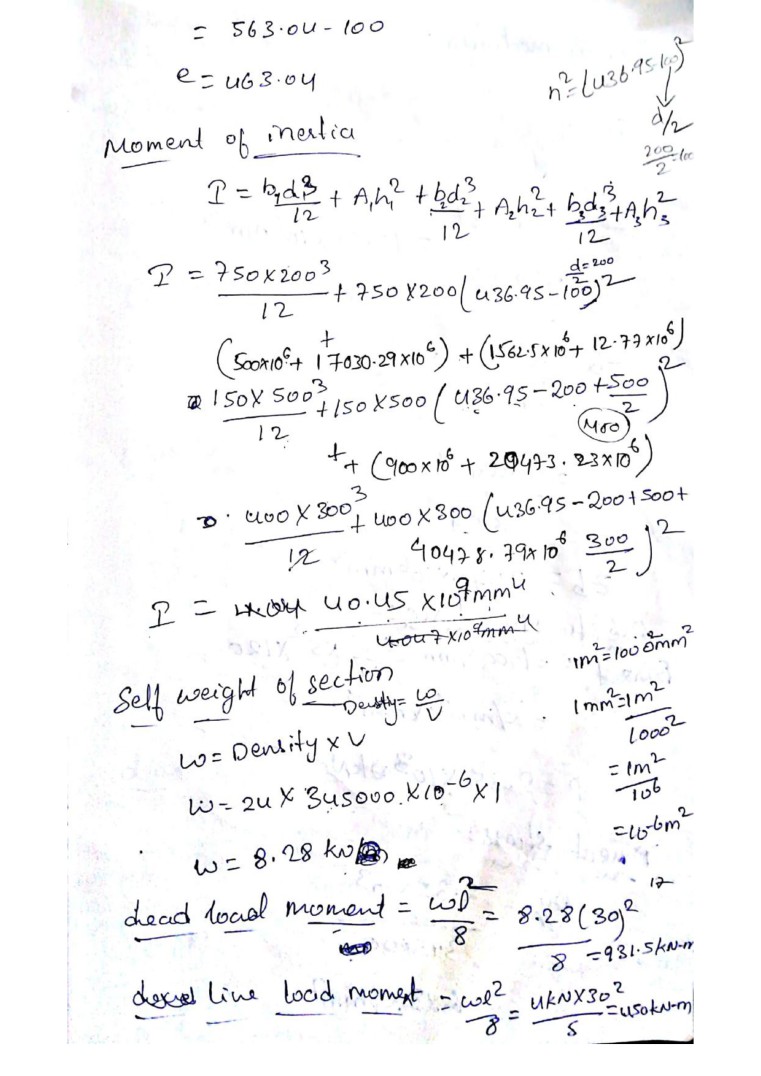 = 563.04 - 100
e = 463.04
n² = (436.95 - 100)²
d/2
200/2 = 100
Moment of inertia
I = b₁d₁³/12 + A₁h₁² + b₂d₂³/12 + A₂h₂² + b₃d₃³/12 + A₃h₃²
I = 750 x 200³/12 + 750 x 200 (436.95 - 100)²
d/2 = 200
+
(500x10⁶ + 17030.29 x10⁶) + (1562.5 x 10⁶ + 12.77 x10⁶)
150 x 500³/12 + 150 x 500 (436.95 - 200 + 500/2)²
+ + (900 x 10⁶ + 20473.23 x 10⁶)
400 x 300³/12 + 400 x 300 (436.95 - 200 + 500 + 300/2)²
40478.79 x 10⁶
I = 40.45 x 10⁹ mm⁴
4.047 x 10⁹ mm⁴
1m² = 1000² mm²
Self weight of section
Density = ω/V
1mm² = 1m²/1000²
ω = Density x V
= 1m²/10⁶
ω = 24 x 345000 x 10⁻⁶ x 1
= 10⁻⁶ m²
ω = 8.28 kN
12
dead load moment = ωl²/8 = 8.28(30)²/8 = 931.5 kN-m
live load moment = ωl²/8 = 4kN x 30²/8 = 450 kN-m